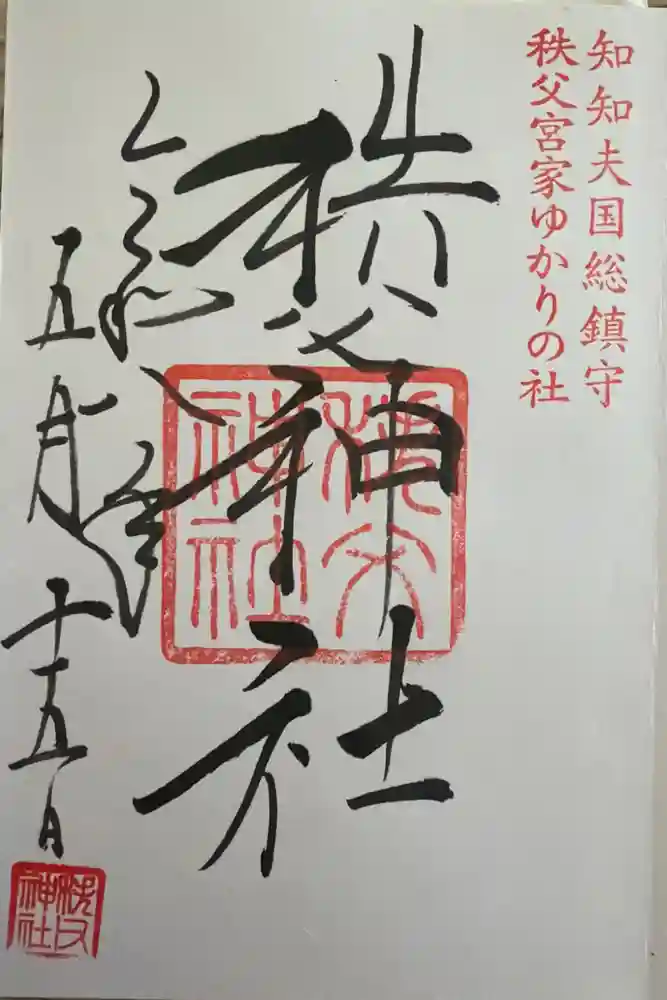 知知夫国総鎮守
秩父宮家ゆかりの社
秩父神社
秩父神社
五月十五日
秩父神社